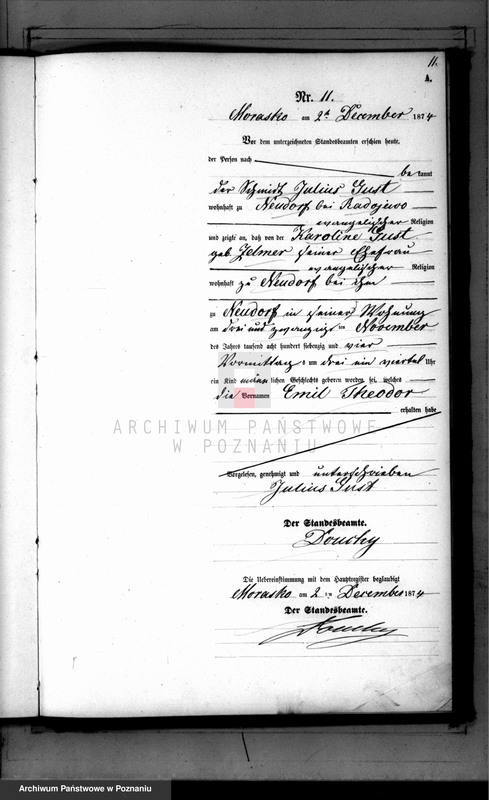 11.
A.
Nr. 11.
Morasko am 2t December 1874
Vor dem unterzeichneten Standesbeamten erschien heute,
der Person nach
be kannt
der Schmidt Julius Gust
wohnhaft zu Neudorf bei Radojewo
evangelischer Religion
und zeigte an, daß von der Karoline Gust
geb. Zelmer seiner Ehefrau
evangelischer Religion
wohnhaft zu Neudorf bei ihm
zu Neudorf in seiner Wohnung
am drei und zwanzigsten November
des Jahres tausend acht hundert siebenzig und vier
Vormittags um drei ein viertel Uhr
ein Kind männlichen Geschlechts geboren worden sei, welches
die Vornamen Emil Theodor
erhalten habe
ARCHIWUM PAŃSTWOWE
W POZNANIU
Vorgelesen, genehmigt und unterschrieben
Julius Gust
Der Standesbeamte.
Douchy
Die Uebereinstimmung mit dem Hauptregister beglaubigt
Morasko am 2 ten December 1874
Der Standesbeamte.
Douchy
Archiwum Państwowe w Poznaniu